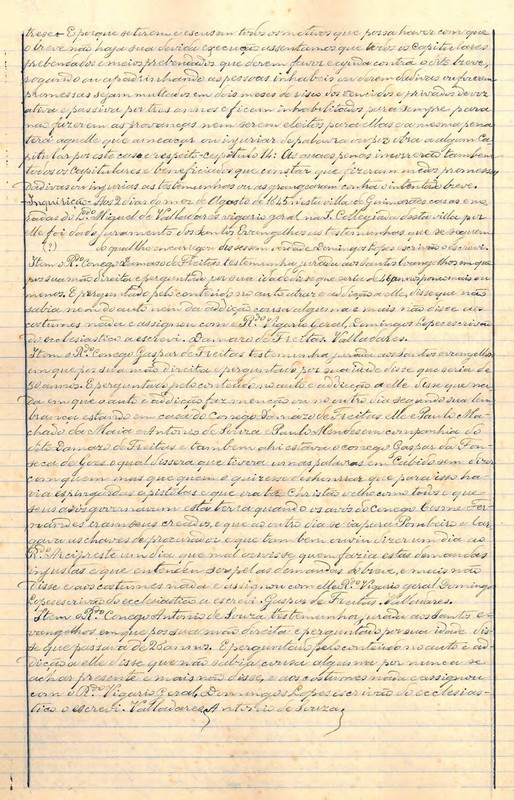 E porque se tirem e escusem todos os motivos que possa haver com que
o breve não haja sua devida execução assentamos que todos os capitulares
prebendados e meios prebendados que derem favor e ajuda contra o dito breve,
rogando ou apadrinhando as pessoas inhabeis ou derem dadivas ou fizerem
promessas sejam multados em dois mezes de visus dos conezios e privados de voz
ativa e passiva por tres annos e ficam inhabilitados pera sempre para
não fazerem as provanças nem serem eleitos para ellas e a mesma pena
terá aquelle que ameaçar ou injuriar de palavra ou por obra a algum ca-
pitular por este caso e respeito - capitulo 14: As quaes penas incorrerão tambem
todos os capitulares e beneficiados que constar que fizeram medos promessas
dadivas ou injurias as testemunhas ou as grangearam contra o intento do breve.
Inquirição - Aos 2 dias do mez de Agosto de 1645 nesta villa de Guimarães casas e mo-
radas do Lic.do Miguel de Valladares vigario geral na I. Collegiada desta villa por
elle foi dado juramento dos Santos Evangelhos as testemunhas que se seguem
(?) do qual lhe encarregou dissessem verdade Domingos Lopes escrivão o escrevi.
Item o R.do Conego Damazo de Freitas testemunha jurada aos Santos evangelhos em que
pos sua mão direita e perguntado por sua idade disse que seria de 46 annos pouco mais ou
menos. E perguntado pelo contendo no auto atraz e addicção a elle, disse que não
sabia nem do auto nem da addicção cousa alguma e mais não disse e aos
costumes nada e assignou com o R.do Vigario Geral, Domingos Lopes escrivão
do ecclesiastico a escrevi. Damazo de Freitas. Valladares.
Item o R.do Conego Gaspar de Freitas testemunha jurada aos Santos evangelhos
em que pos sua mão direita e perguntado por sua idade disse que seria de
50 annos. E perguntado pelo contendo no auto e addicção a elle disse que no
dia em que o auto e addicção faz menção ou no outro dia segundo sua lem-
brança estando em casa do Conego Damazo de Freitas elle e Paulo Ma-
chado da Maia e Antonio de Souza e Paulo Mendes em companhia do
dito Damazo de Freitas e tambem ahi estava o conego Gaspar da Fon-
seca de Goes o qual dissera que tivera umas palavras em Cabido sem dizer
com quem mas que quem o quizesse deshonrar que para isso ha-
via espingardas e pistolas e que era tão Christão velho como todos e que
seus avós governavam esta terra quando os avós do conego Cosme Fer-
nandes eram seus creados, e que ao outro dia se ia pera Pombeiro e lar-
gava as chaves de procurador e que tambem ouviu dizer um dia ao
R.do Arcipreste um dia que mal ouvisse quem fazia estas demandas
injustas e que entendeu ser pelas demandas do breve, e mais não
disse e aos costumes nada e assignou com elle R.do Vigario geral Domingos
Lopes escrivão do ecclesiastico a escrevi. Gaspar de Freitas. Valladares.
Item o R.do Conego Antonio de Souza testemunha jurada aos Santos e-
vangelhos em que pos sua mão direita e perguntado por sua idade dis-
se que passava de 25 annos. E perguntado pelo contendo no auto e ad-
dicção a elle disse que não sabia cousa alguma por nunca se
achar presente e mais não disse, e aos costumes nada e assignou
com o R.do Vigario Geral, Domingos Lopes escrivão do ecclesias-
tico o escrevi. Valladares, Antonio de Souza